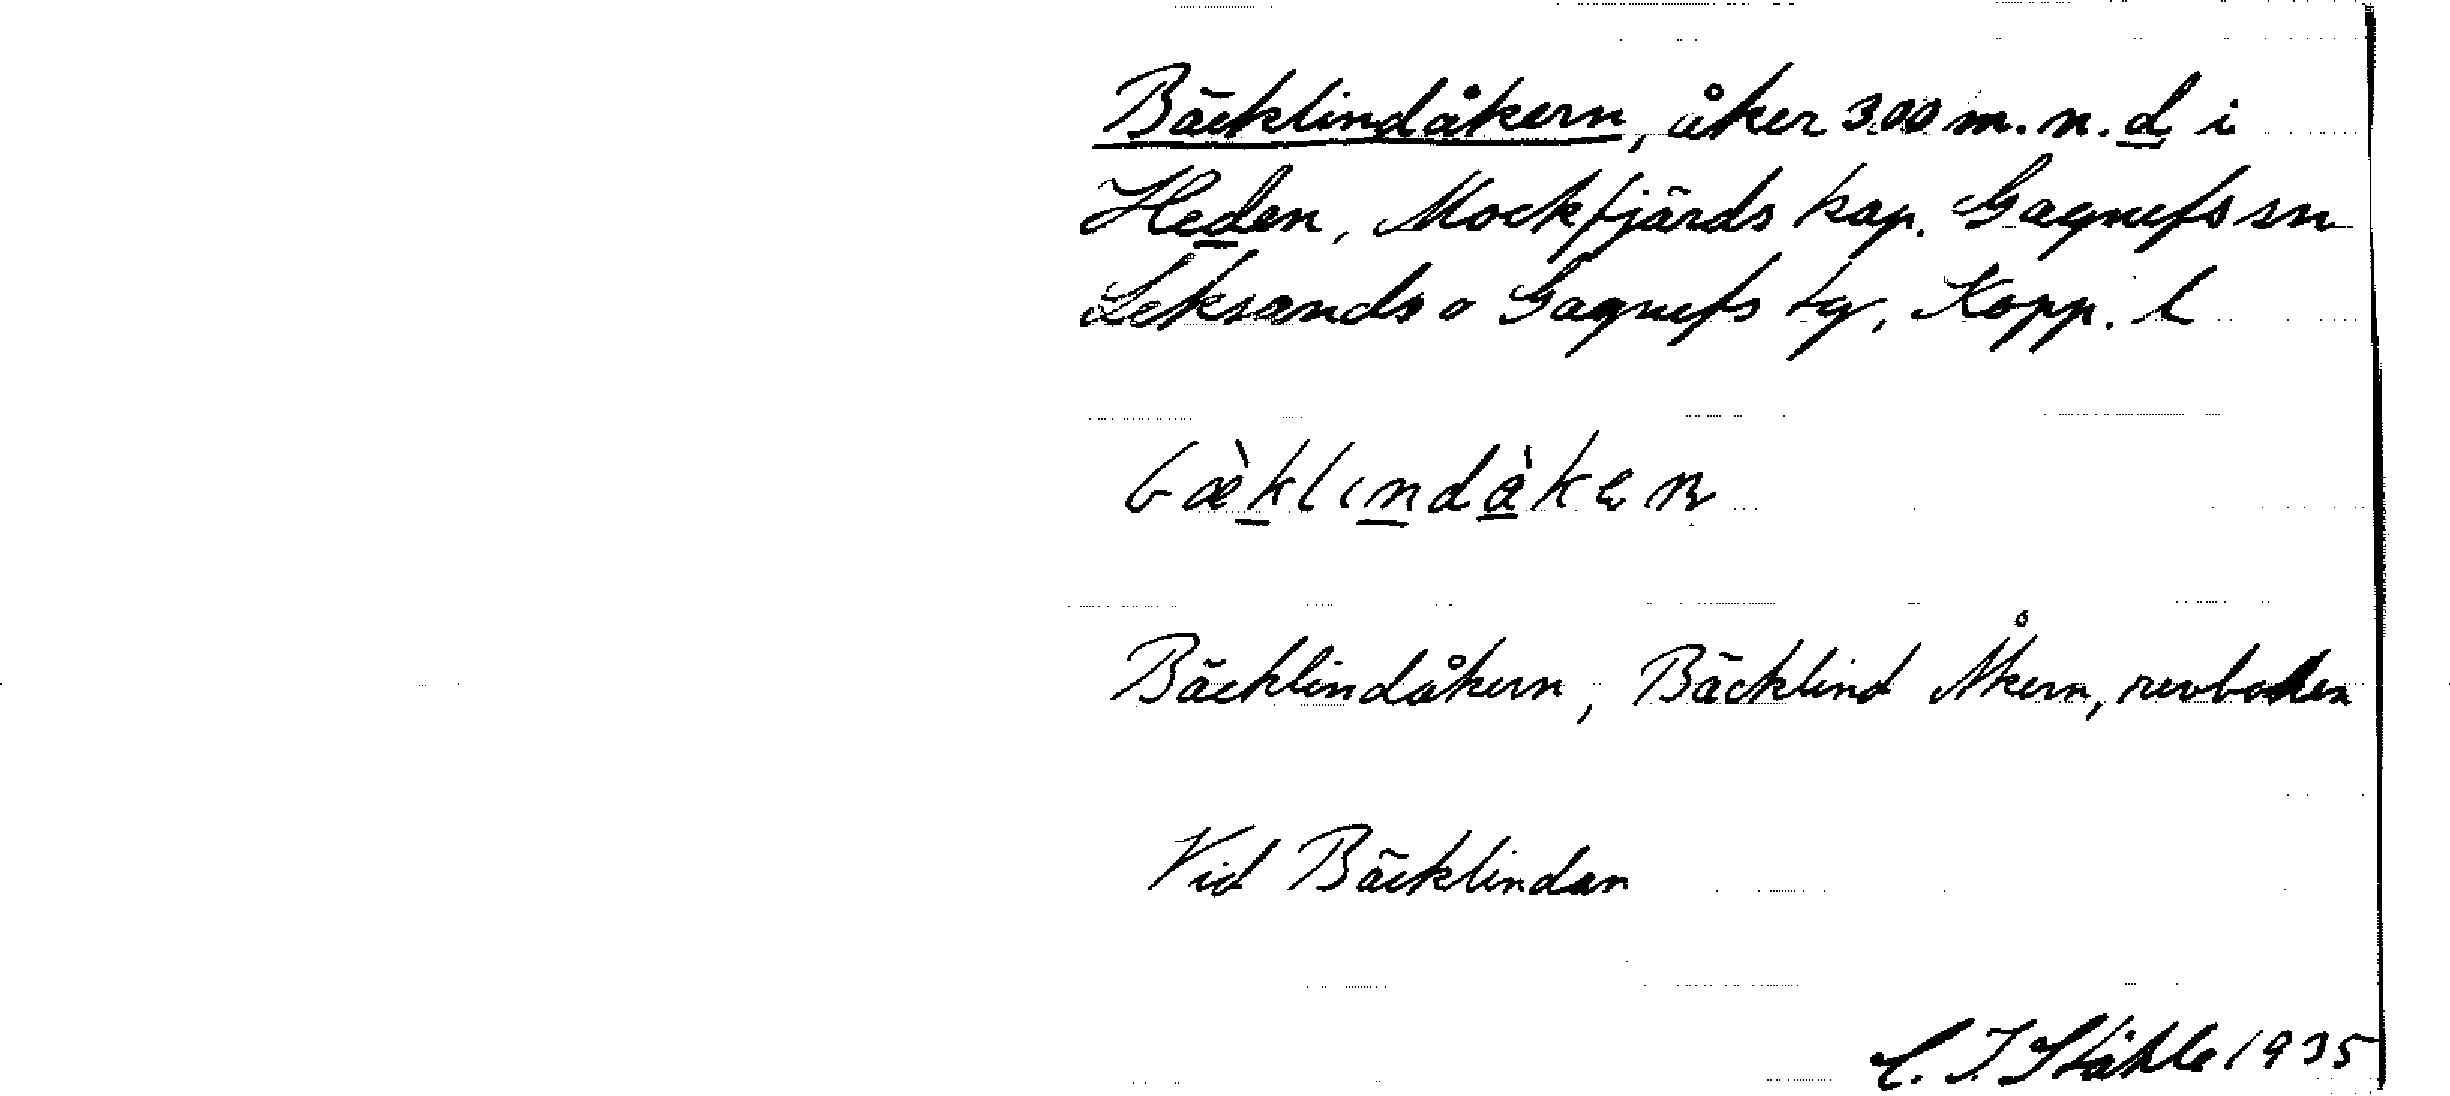 Bäcklindåkern, åker 300 m. n. d i
Heden, Mockfjärds kap. Gagnefs sn
Leksands o Gagnefs tg, Kopp. l
bæ̀klındàkɐn
Bäcklindåkern, Bäcklind Åkern, revboken
Vid Bäcklindan
C. I. Ståhle 1935